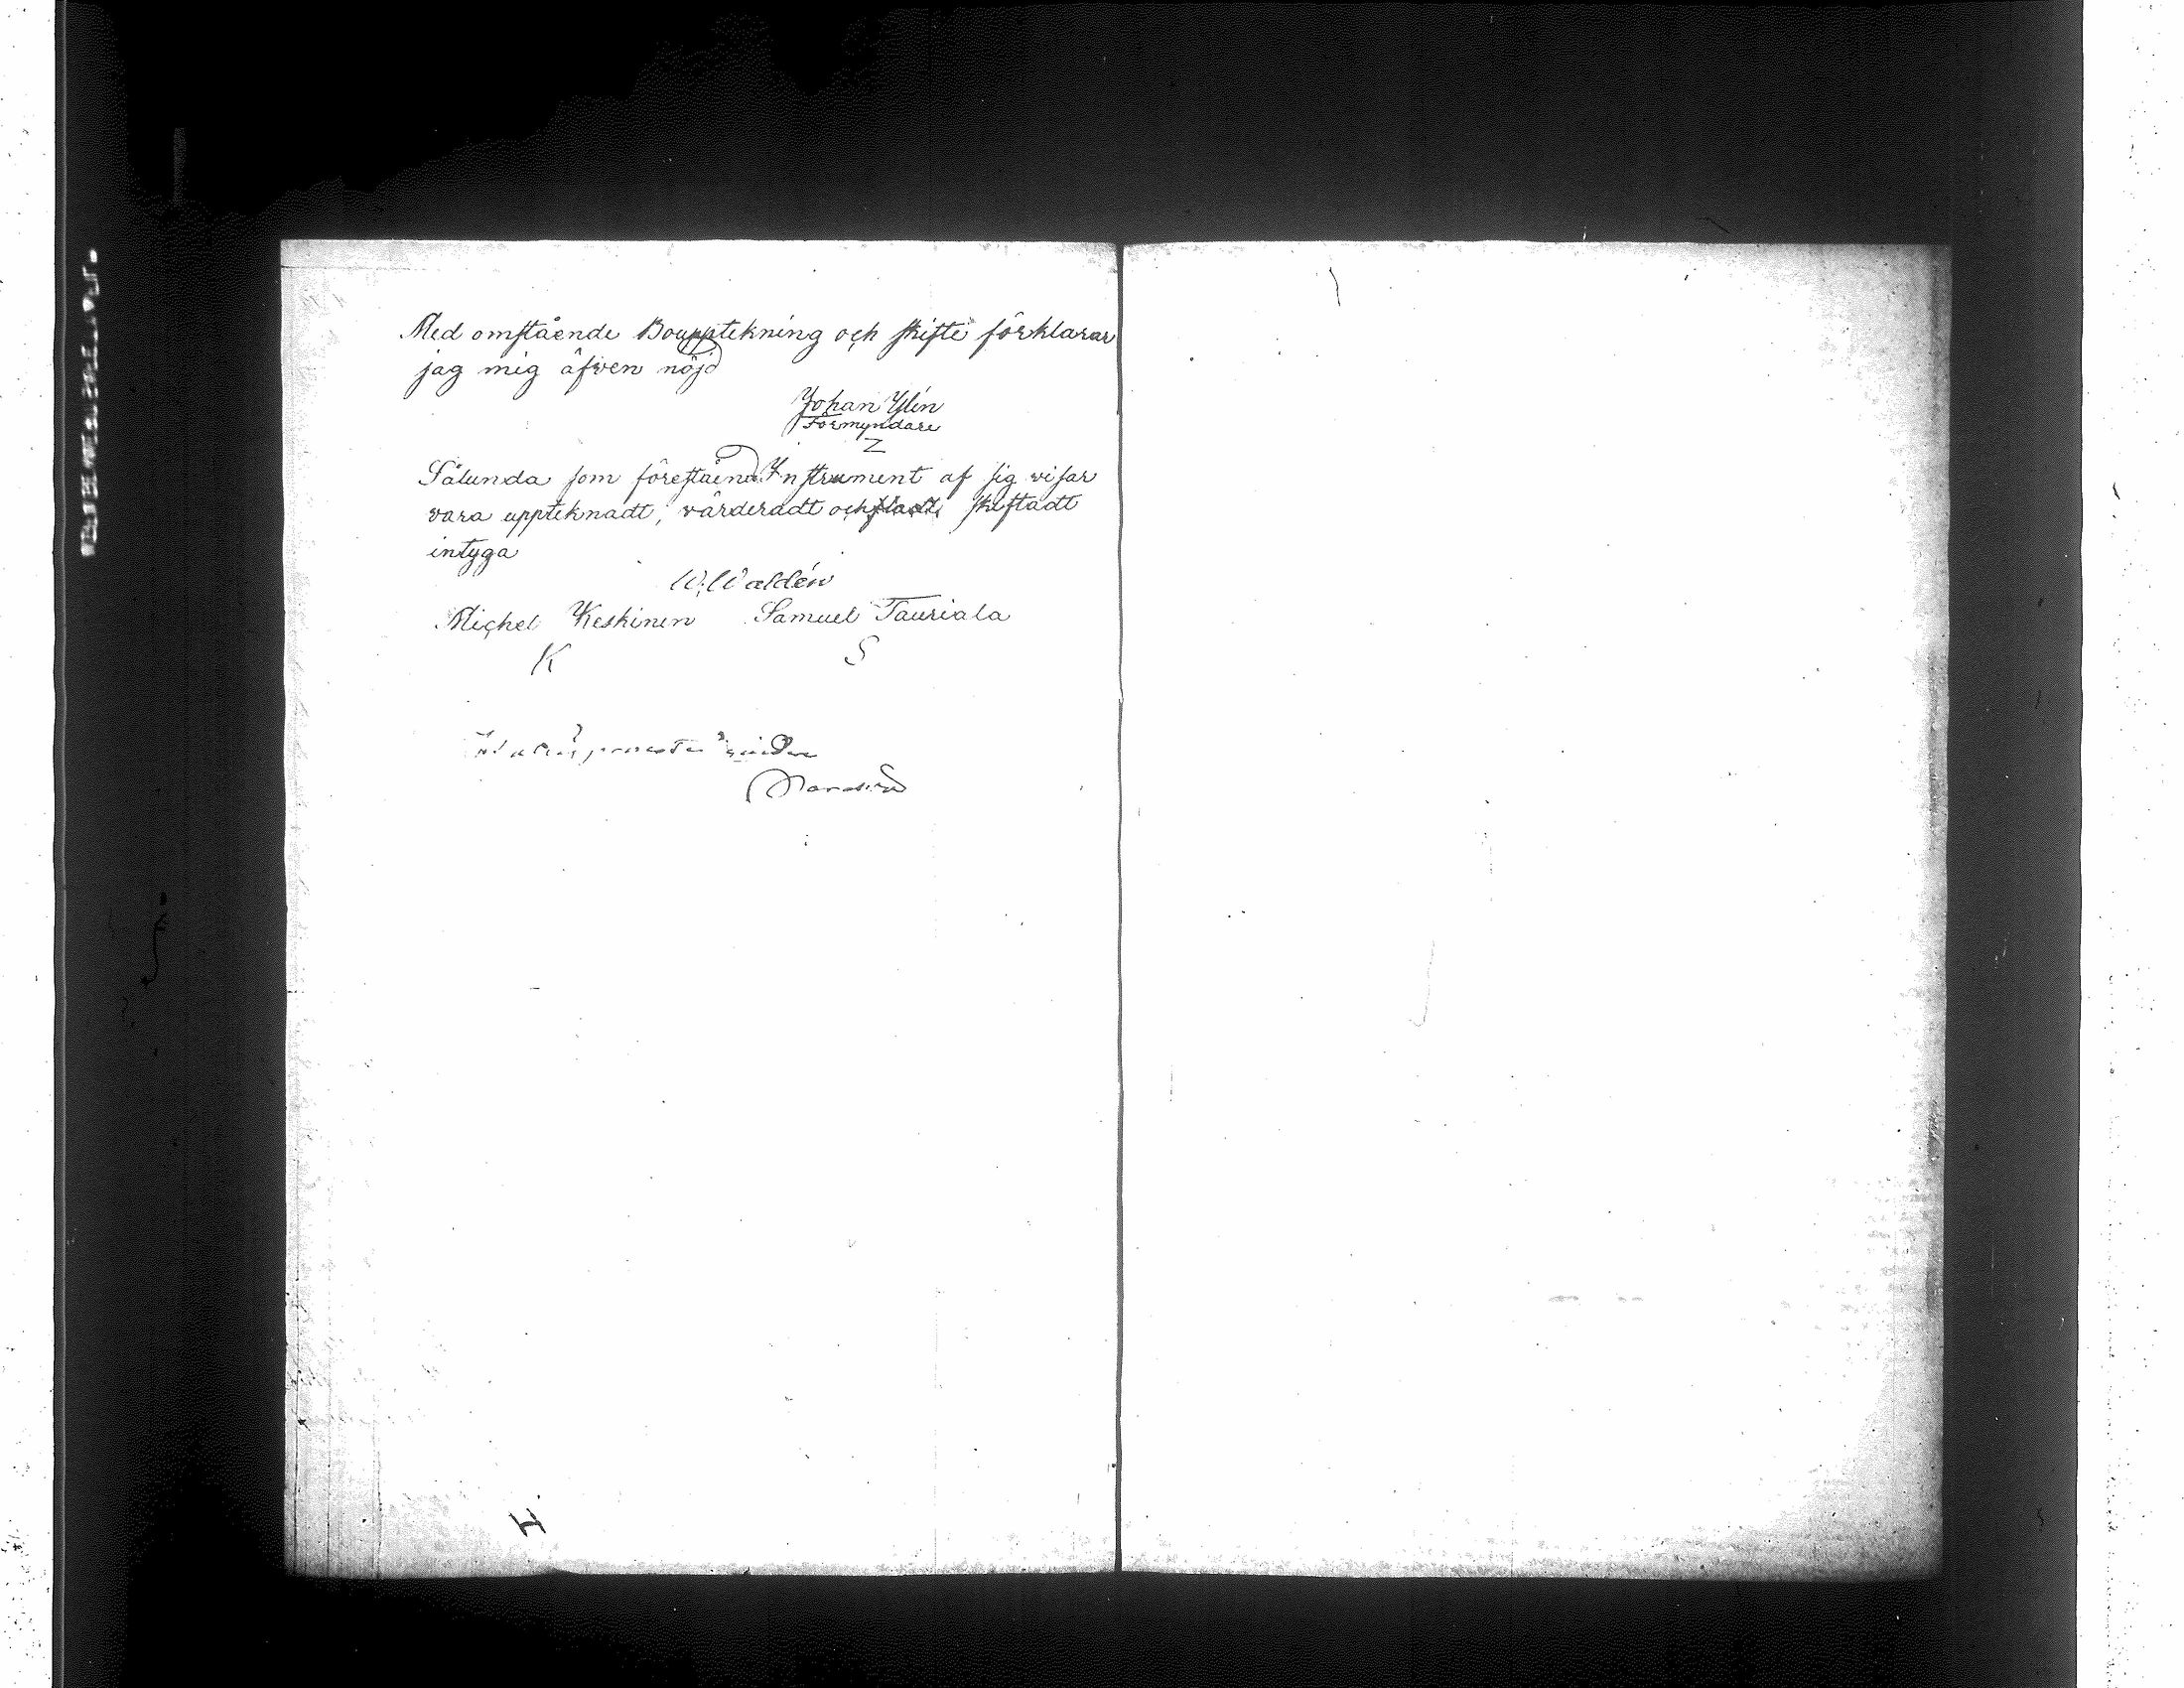 Med omstående Bouppteckning och skifte förklarar
jag mig äfven nöjd
Johan Ylén
Förmyndare
Z
Sålunda som förestående Instrument af sig visar
vara uppteknadt, värderadt och skiftadt
intyga
W. Waldén
Michel Keskinen Samuel Tauriala
K S